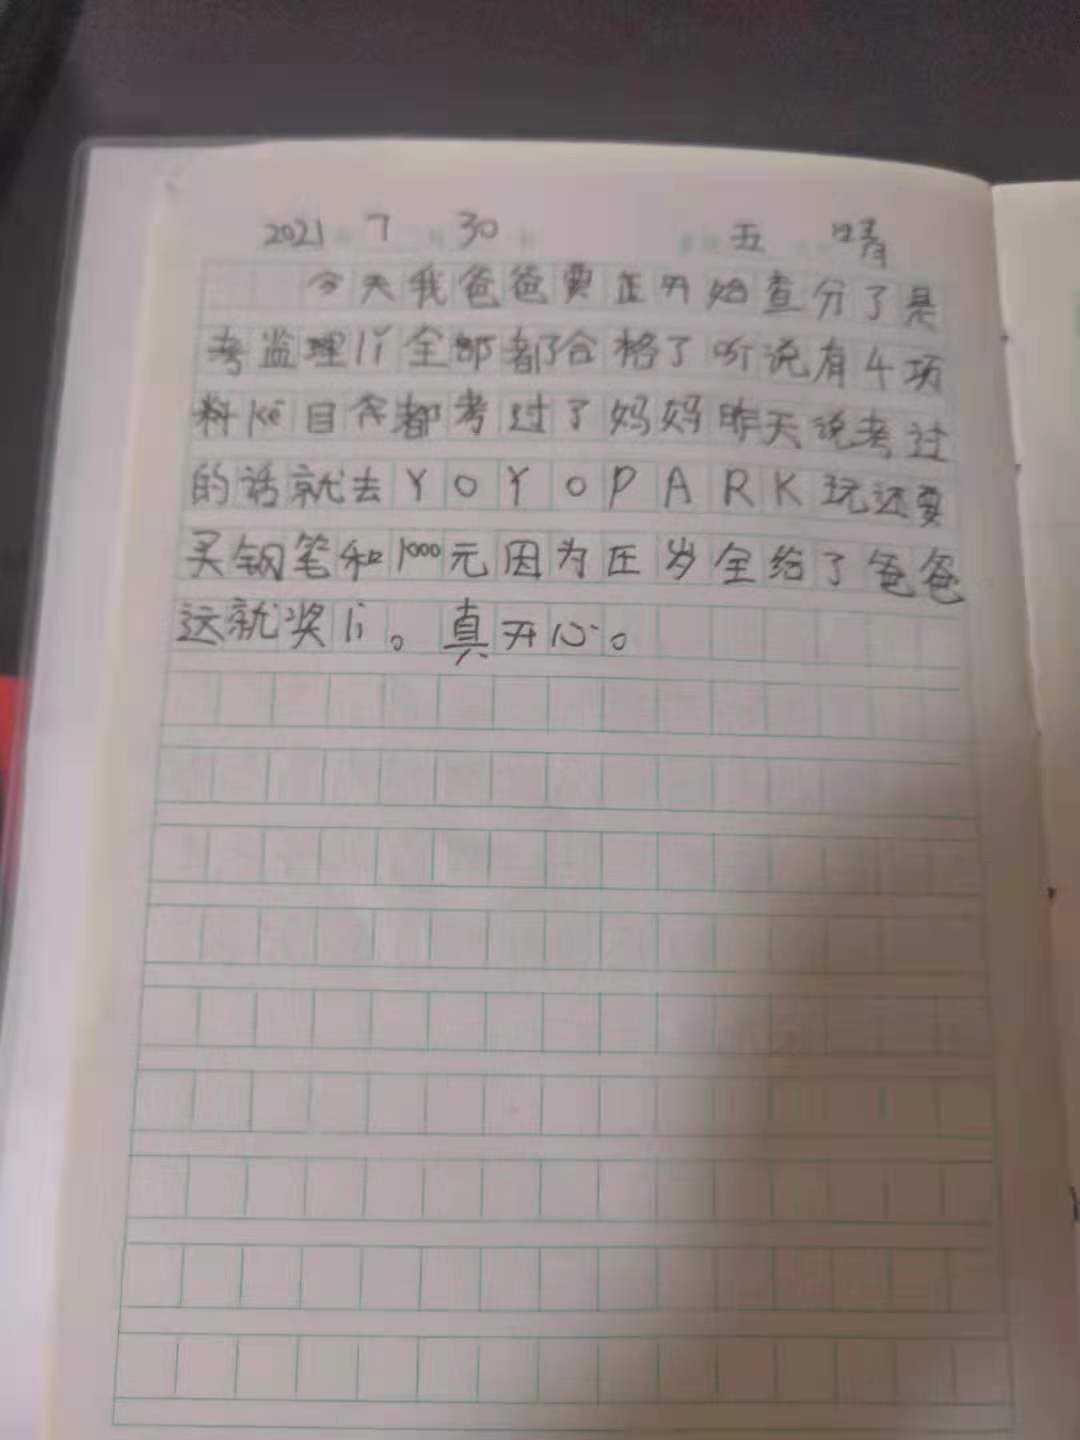 2021 7 30 五 晴
今天我爸爸要正开始查分了是
考监理lǐ全部都合格了听说有4项
料kē目全都考过了妈妈昨天说考过
的话就去YOYOPARK玩还要
买钢笔和1000元因为压岁全给了爸爸
这就奖lì。真开心。